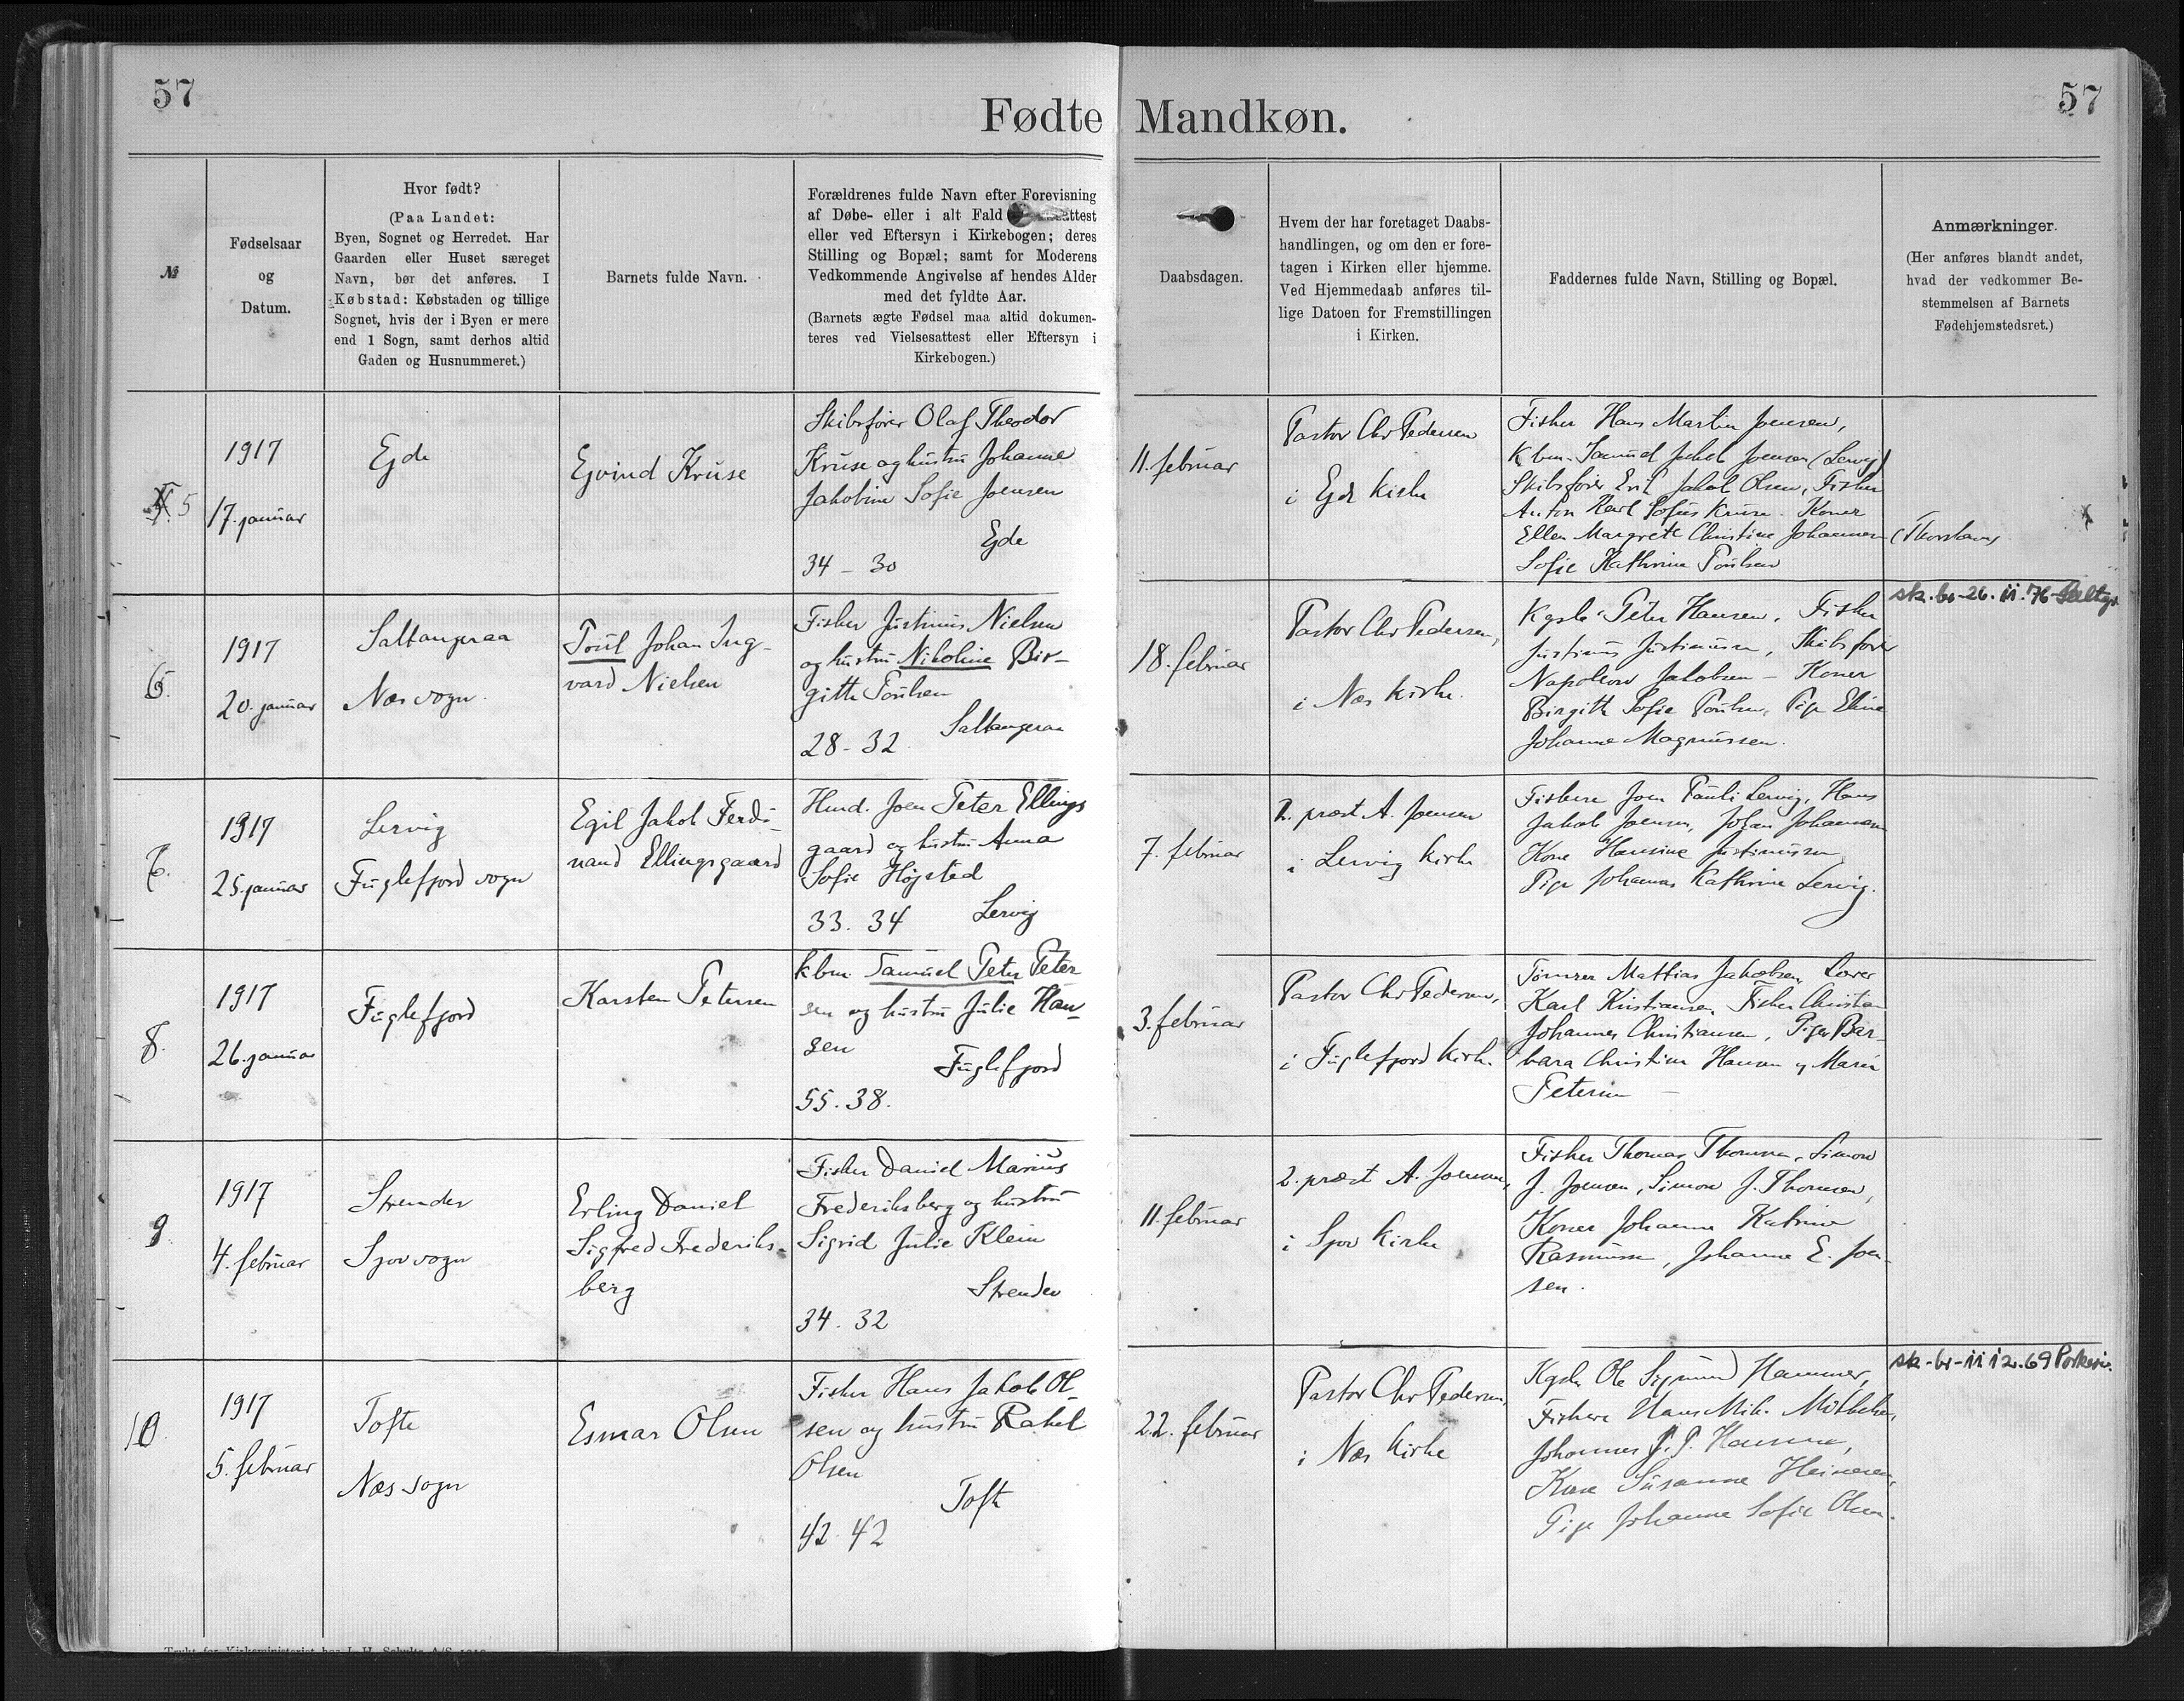 57
57
Fødte Mandkøn.
№
Fødselsaar
og
Datum.
Hvor født?
(Paa Landet:
Byen, Sognet og Herredet. Har
Gaarden eller Huset særeget
Navn, bør det anføres. I
Købstad: Købstaden og tillige
Sognet, hvis der i Byen er mere
end 1 Sogn, samt derhos altid
Gaden og Husnummeret.)
Barnets fulde Navn.
Forældrenes fulde Navn efter Forevisning
af Døbe- eller i alt Fald
eller ved Eftersyn i Kirkebogen; deres
Stilling og Bopæl; samt for Moderens
Vedkommende Angivelse af hendes Alder
med det fyldte Aar.
(Barnets ægte Fødsel maa altid dokumen-
teres ved Vielsesattest eller Eftersyn i
Kirkebogen.)
Daabsdagen.
Hvem der har foretaget Daabs-
handlingen, og om den er fore-
tagen i Kirken eller hjemme.
Ved Hjemmedaab anføres til-
lige Datoen for Fremstillingen
i Kirken.
Faddernes fulde Navn, Stilling og Bopæl.
Anmærkninger.
(Her anføres blandt andet,
hvad der vedkommer Be-
stemmelsen af Barnets
Fødehjemstedsret.)
5
1917
17. januar
Ejde
Ejvind Kruse
Skibsfører Olaf Theodor
Kruse og hustru Johanne
Jakobine Sofie Joensen
Ejde
34 - 30
11. februar
Pastor Chr Pedersen
i Ejde kirke
Fisker Hans Martin Joensen,
Kbm. Samuel Jakob Joensen (Lervig)
Skibsfører Erik Jakob Olsen, Fisker
Anton Karl Sofus Kruse. Koner
Ellen Margrete Christine Johannesen (Thorshavn)
Sofie Kathrine Poulsen
6.
1917
20. januar
Saltangeraa
Næs sogn.
Poul Johan Ing-
vard Nielsen
Fisker Justinus Nielsen
og hustru Nikoline Bir-
gitte Poulsen
Saltangeraa
28 - 32
18. februar
Pastor Chr Pedersen,
i Næs kirke.
Kgsb. Peter Hansen, Fisker
Justinus Justinussen, Skibsfører
Napoleon Jakobsen - Koner
Birgitte Sofie Poulsen, Pige Elina
Johanne Magnussen.
sk.br-26.11.76
1917
25. januar
Lervig
Fuglefjord sogn
Egil Jakob Ferdi-
nand Ellingsgaard
Hmd. Joen Peter Ellings
gaard og hustru Anna
Sofie Højsted
33. 34 Lervig
7. februar
2. præst A. Joensen
i Lervig kirke
Fiskere Joen Pauli Lervig, Hans
Jakob Joensen, Johan Johannesen
Kone Hansine Justinussen
Pige Johanna Kathrine Lervig.
8.
1917
26. januar
Fuglefjord
Karsten Petersen
kbm. Samuel Peter Peter
sen og hustru Julie Han-
sen
Fuglefjord
55. 38.
3. februar
Pastor Chr Pedersen,
i Fuglefjord kirke.
Tømrer Mattias Jakobsen, Lærer
Karl Kristiansen, Fisker Christian
Johannes Christiansen, Piger Bar-
bara Christine Hansen og Maria
Petersen
9
1917
4. februar
Strender
Sjov sogn
Erling Daniel
Sigfred Frederiks-
berg
Fisker Daniel Marius
Frederiksberg og hustru
Sigrid Julie Klein
Strender
34. 32
11. februar
2. præst A. Joensen,
i Sjov kirke
Fisker Thomas Thomsen, Simon
J. Joensen, Simon J. Thomsen,
Koner Johanne Katrine
Rasmussen, Johanne E. Joen-
sen.
10.
1917
5. februar
Tofte
Næs sogn
Esmar Olsen
Fisker Hans Jakob Ol-
sen og hustru Rakel
Olsen
Tofte
42. 42
22. februar
Pastor Chr Pedersen,
i Næs kirke
Kgsb. Ole Sigmund Hammer,
Fiskere Hans Mik.
Johannes J. P.
Kone Susanne Heinesen,
Pige Johanne Sofie Olsen.
sk-br-11 12.69 Porkeri.